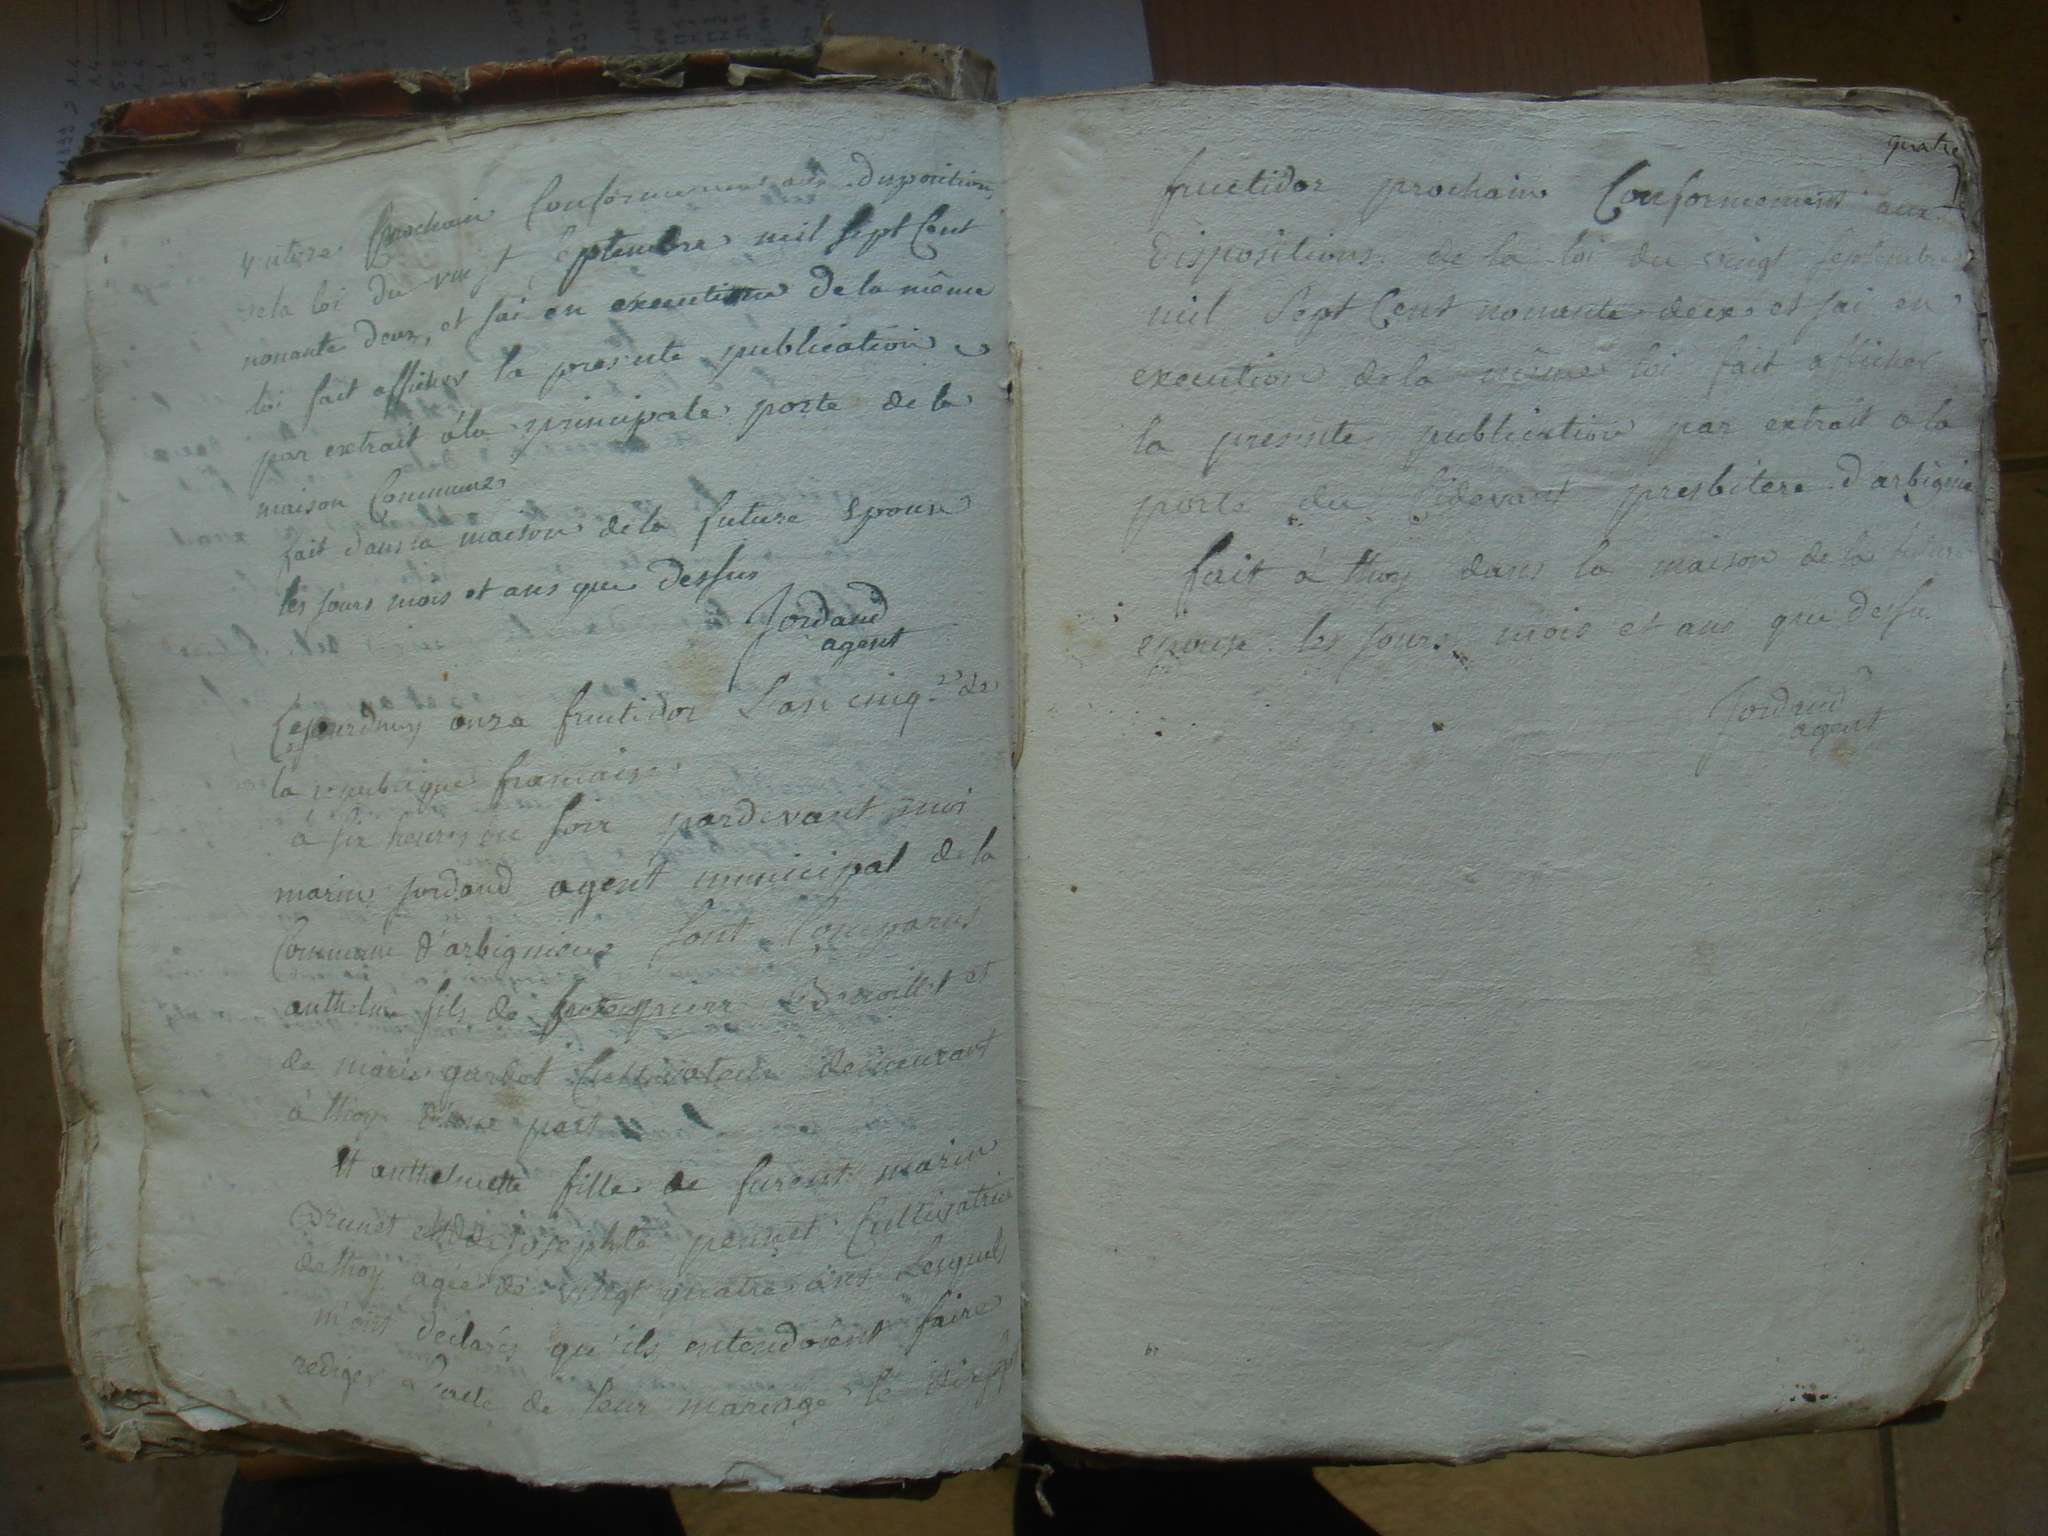 prochain Conformement aux disposition
de la loi du vingt Septembre mil Sept Cent
nonante deux, et j'ai en execution de la même
loi fait afficher la presente publication
par extrait à la principale porte de la
maison Commune
fait dans la maison de la future Epouse
les jours mois et ans que dessus
Jordand
agent
Cejourdhuy onze fructidor L'an cinq de
la republique francaise
à six heures du soir pardevant moi
marin jordand agent municipal de la
Commune d'arbignieu sont Comparus
anthelme fils de pierre et
de marie gardet Cultivateur demeurant
à thoy d'une part
Et anthelmette fille de furent marin
Brunet et de josephte pernet Cultivatrice
de thoy agée de vingt quatre ans Lesquels
m'ont declarés qu'ils entendoient faire
rediger l'acte de leur mariage le
quatre
fructidor prochain Conformement aux
Dispositions de la loi du vingt Septembre
mil Sept Cent nonante deux et j'ai en
execution de la même loi fait afficher
la presente publication par extrait a la
porte du Cidevant presbitere d'arbignieu
fait à thoy dans la maison de la future
epouse les jours mois et ans que dessu
Jordand
agent